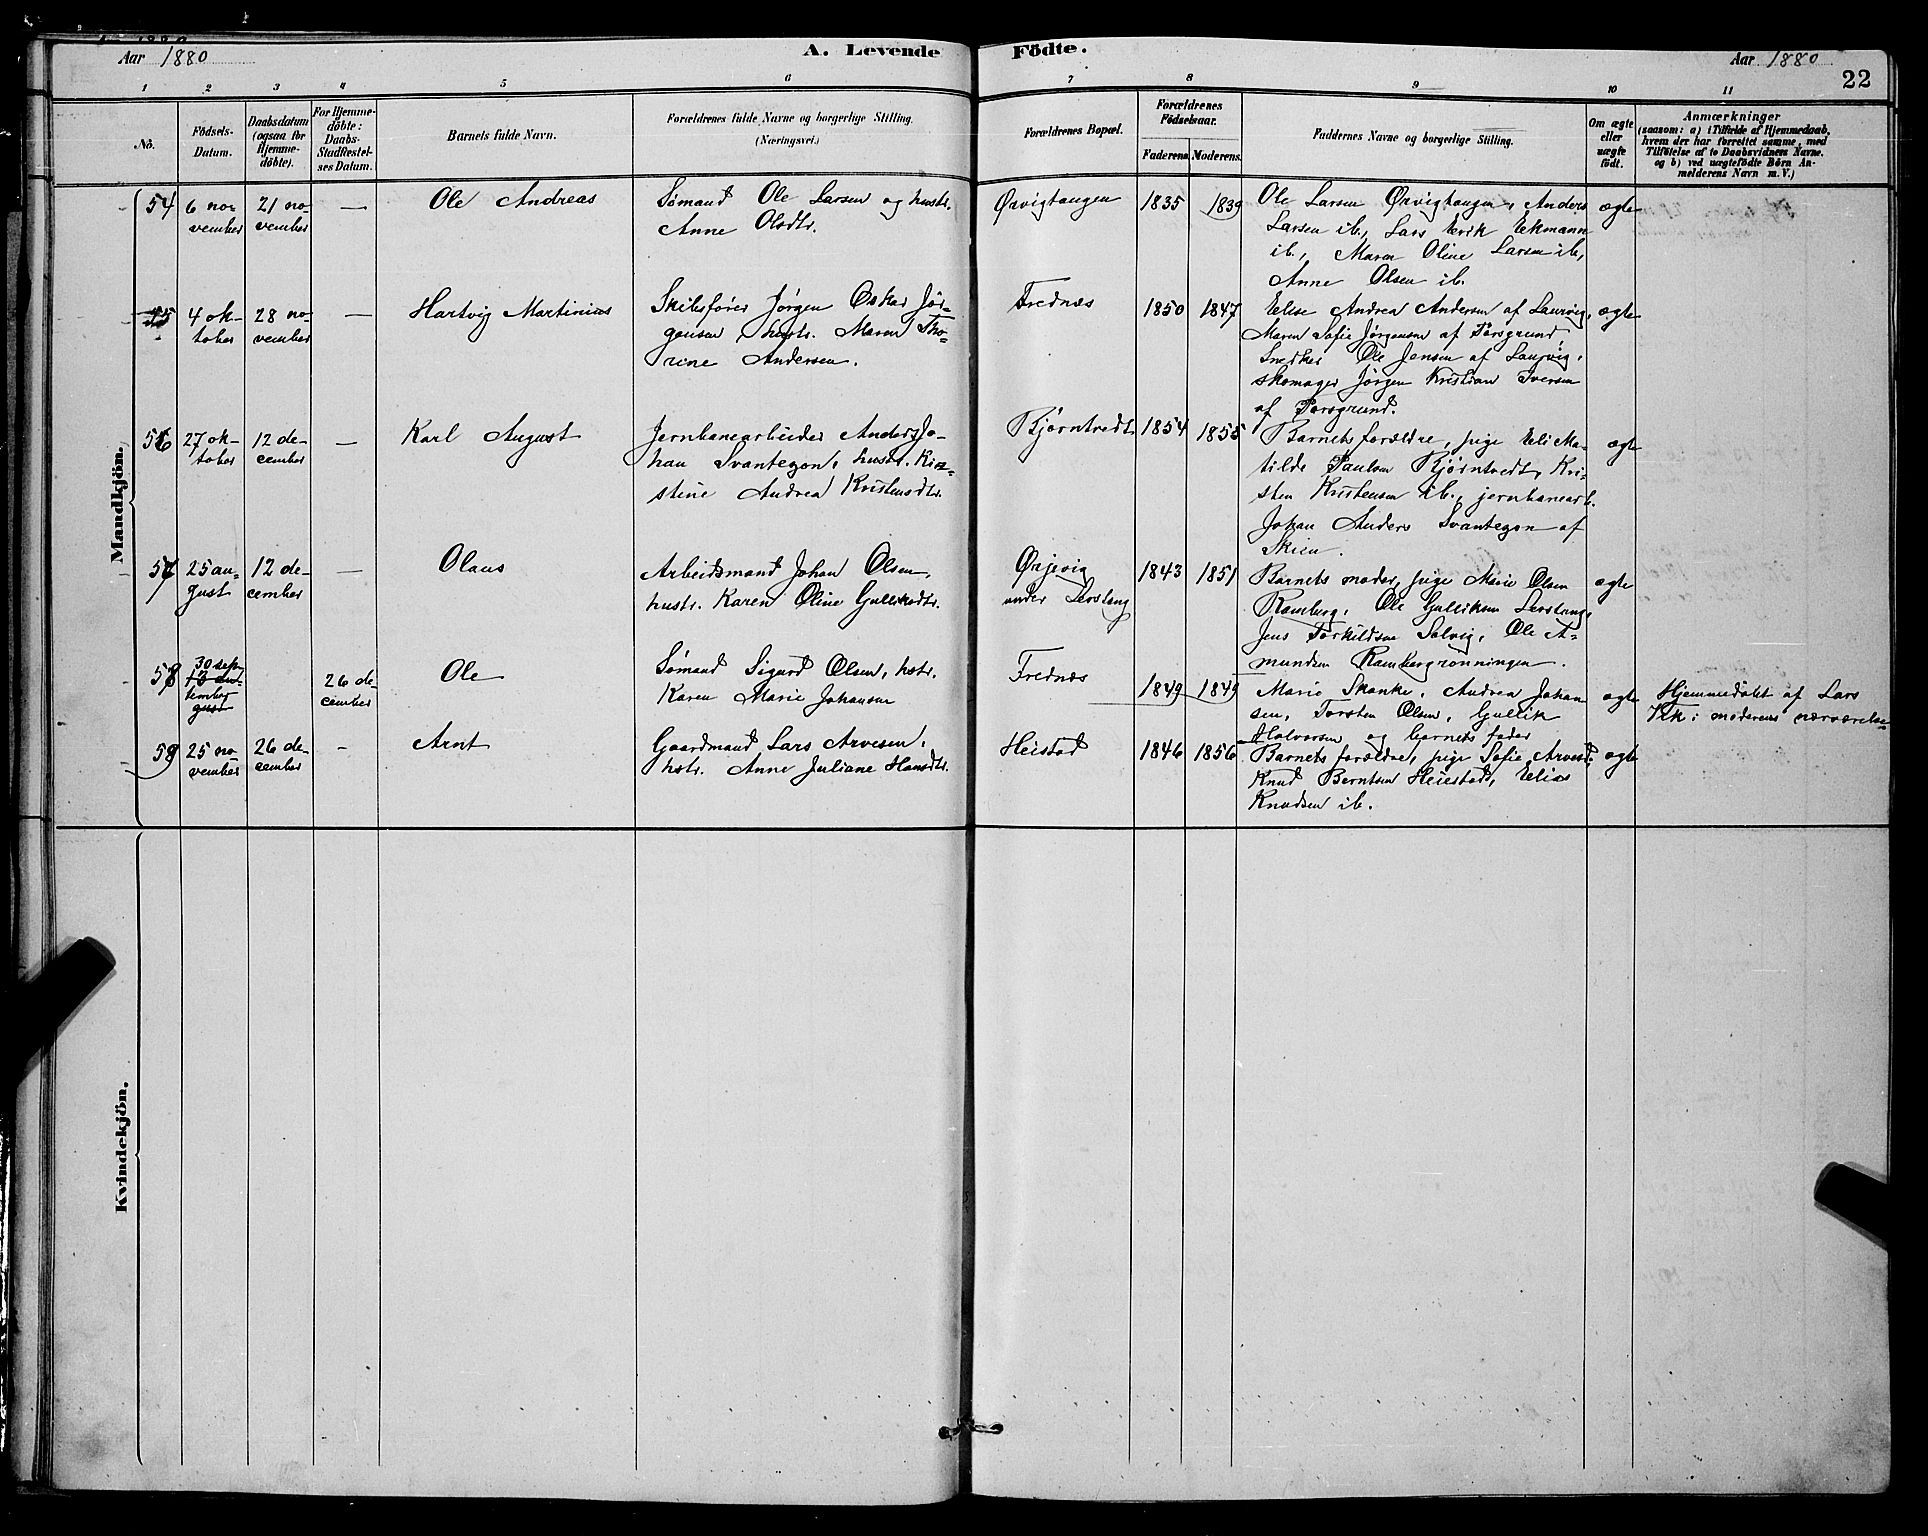 Aar 1880
A. Levende Födte.
Aar 1880
22
1 2 3 4 5 6 7 8 9 10 11
No.
Födsels-
Datum.
Daabsdatum
(ogsaa for
Hjemme-
döbte).
For Hjemme-
döbte:
Daabs-
Stadfæstel-
ses Datum.
Barnets fulde Navn.
Forældrenes fulde Navne og borgerlige Stilling.
(Næringsvei.)
Forældrenes Bopæl.
Forældrenes
Födselsaar.
Faderens. Moderens.
Faddernes Navne og borgerlige Stilling.
Om ægte
eller
uægte
født.
Anmærkninger
(saasom: a) i Tilfælde af Hjemmedaab,
hvem der har forrettet samme, med
Tilföielse af to Daabsvidners Navne.
og b) ved uægtefödte Börn An-
melderens Navn m. V.)
Mandkjön.
54
6 no-
vember
21 no-
vember
—
Ole Andreas
Sømand Ole Larsen og hustr.
Anne Olsdtr.
Ørvigtangen
1835
1839
Ole Larsen Ørvigtangen, Anders
Larsen ib., Lars Erik Ekmann
ib., Maren Oline Larsen ib,
Anne Olsen ib.
ægte
55
4 ok-
tober
28 no-
vember
—
Hartvig Martinius
Skibsfører Jørgen Oskar Jør-
gensen, hustr. Maren Tho-
rine Andersen.
Frednæs
1850
1847
Elise Andrea Andersen af Laurvig,
Maren Sofie Jørgensen af Porsgrund,
Snedker Ole Jensen af Laurvig,
skomager Jørgen Kristian Iversen
af Porsgrund.
ægte
56
27 ok-
tober
12 de-
cember
—
Karl August
Jernbanearbeider Anders Jo-
han Svantegon, hustr. Kir-
stine Andrea Kristensdtr.
Bjørntvedt
1854
1855
Barnets forældre, pige Eli Ma-
tilde Paulsen Bjørntvedt, Kri-
sten Kristensen ib., jernbanearb.
Johan Anders Svantegon af
Skien.
ægte
57
25 au-
gust
12 de-
cember
—
Olaus
Arbeidsmand Johan Olsen,
hustr. Karen Oline Gulliksdtr.
Ørjevig
under Lerstang
1843
1851
Barnets moder, pige Marie Olsen
Ramberg, Ole Gulliksen Lerstang,
Jens Torkildsen Solvig, Ole A-
mundsen Rambergrønningen.
ægte
58
30 sep-
13 au-
tember
gust
26 de-
cember
Ole
Sømand Sigurd Olsen, hstr.
Karen Marie Johansen
Frednæs
1849
1849
Marie Skanke, Andrea Johan
sen, Torsten Olsen, Gullik
Halvorsen og barnets fader
ægte
Hjemmedøbt af Lars
Eek i moderens nærværelse
59
25 no-
vember
26 de-
cember
-
Arnt
Gaardmand Lars Arvesen,
hstr. Anne Juliane Hansdtr.
Heistad
1846
1856
Barnets forældre, pige Sofie Arvesd.
Knud Berntsen Heiestad, Elias
Knudsen ib.
ægte
Kvindekjön.